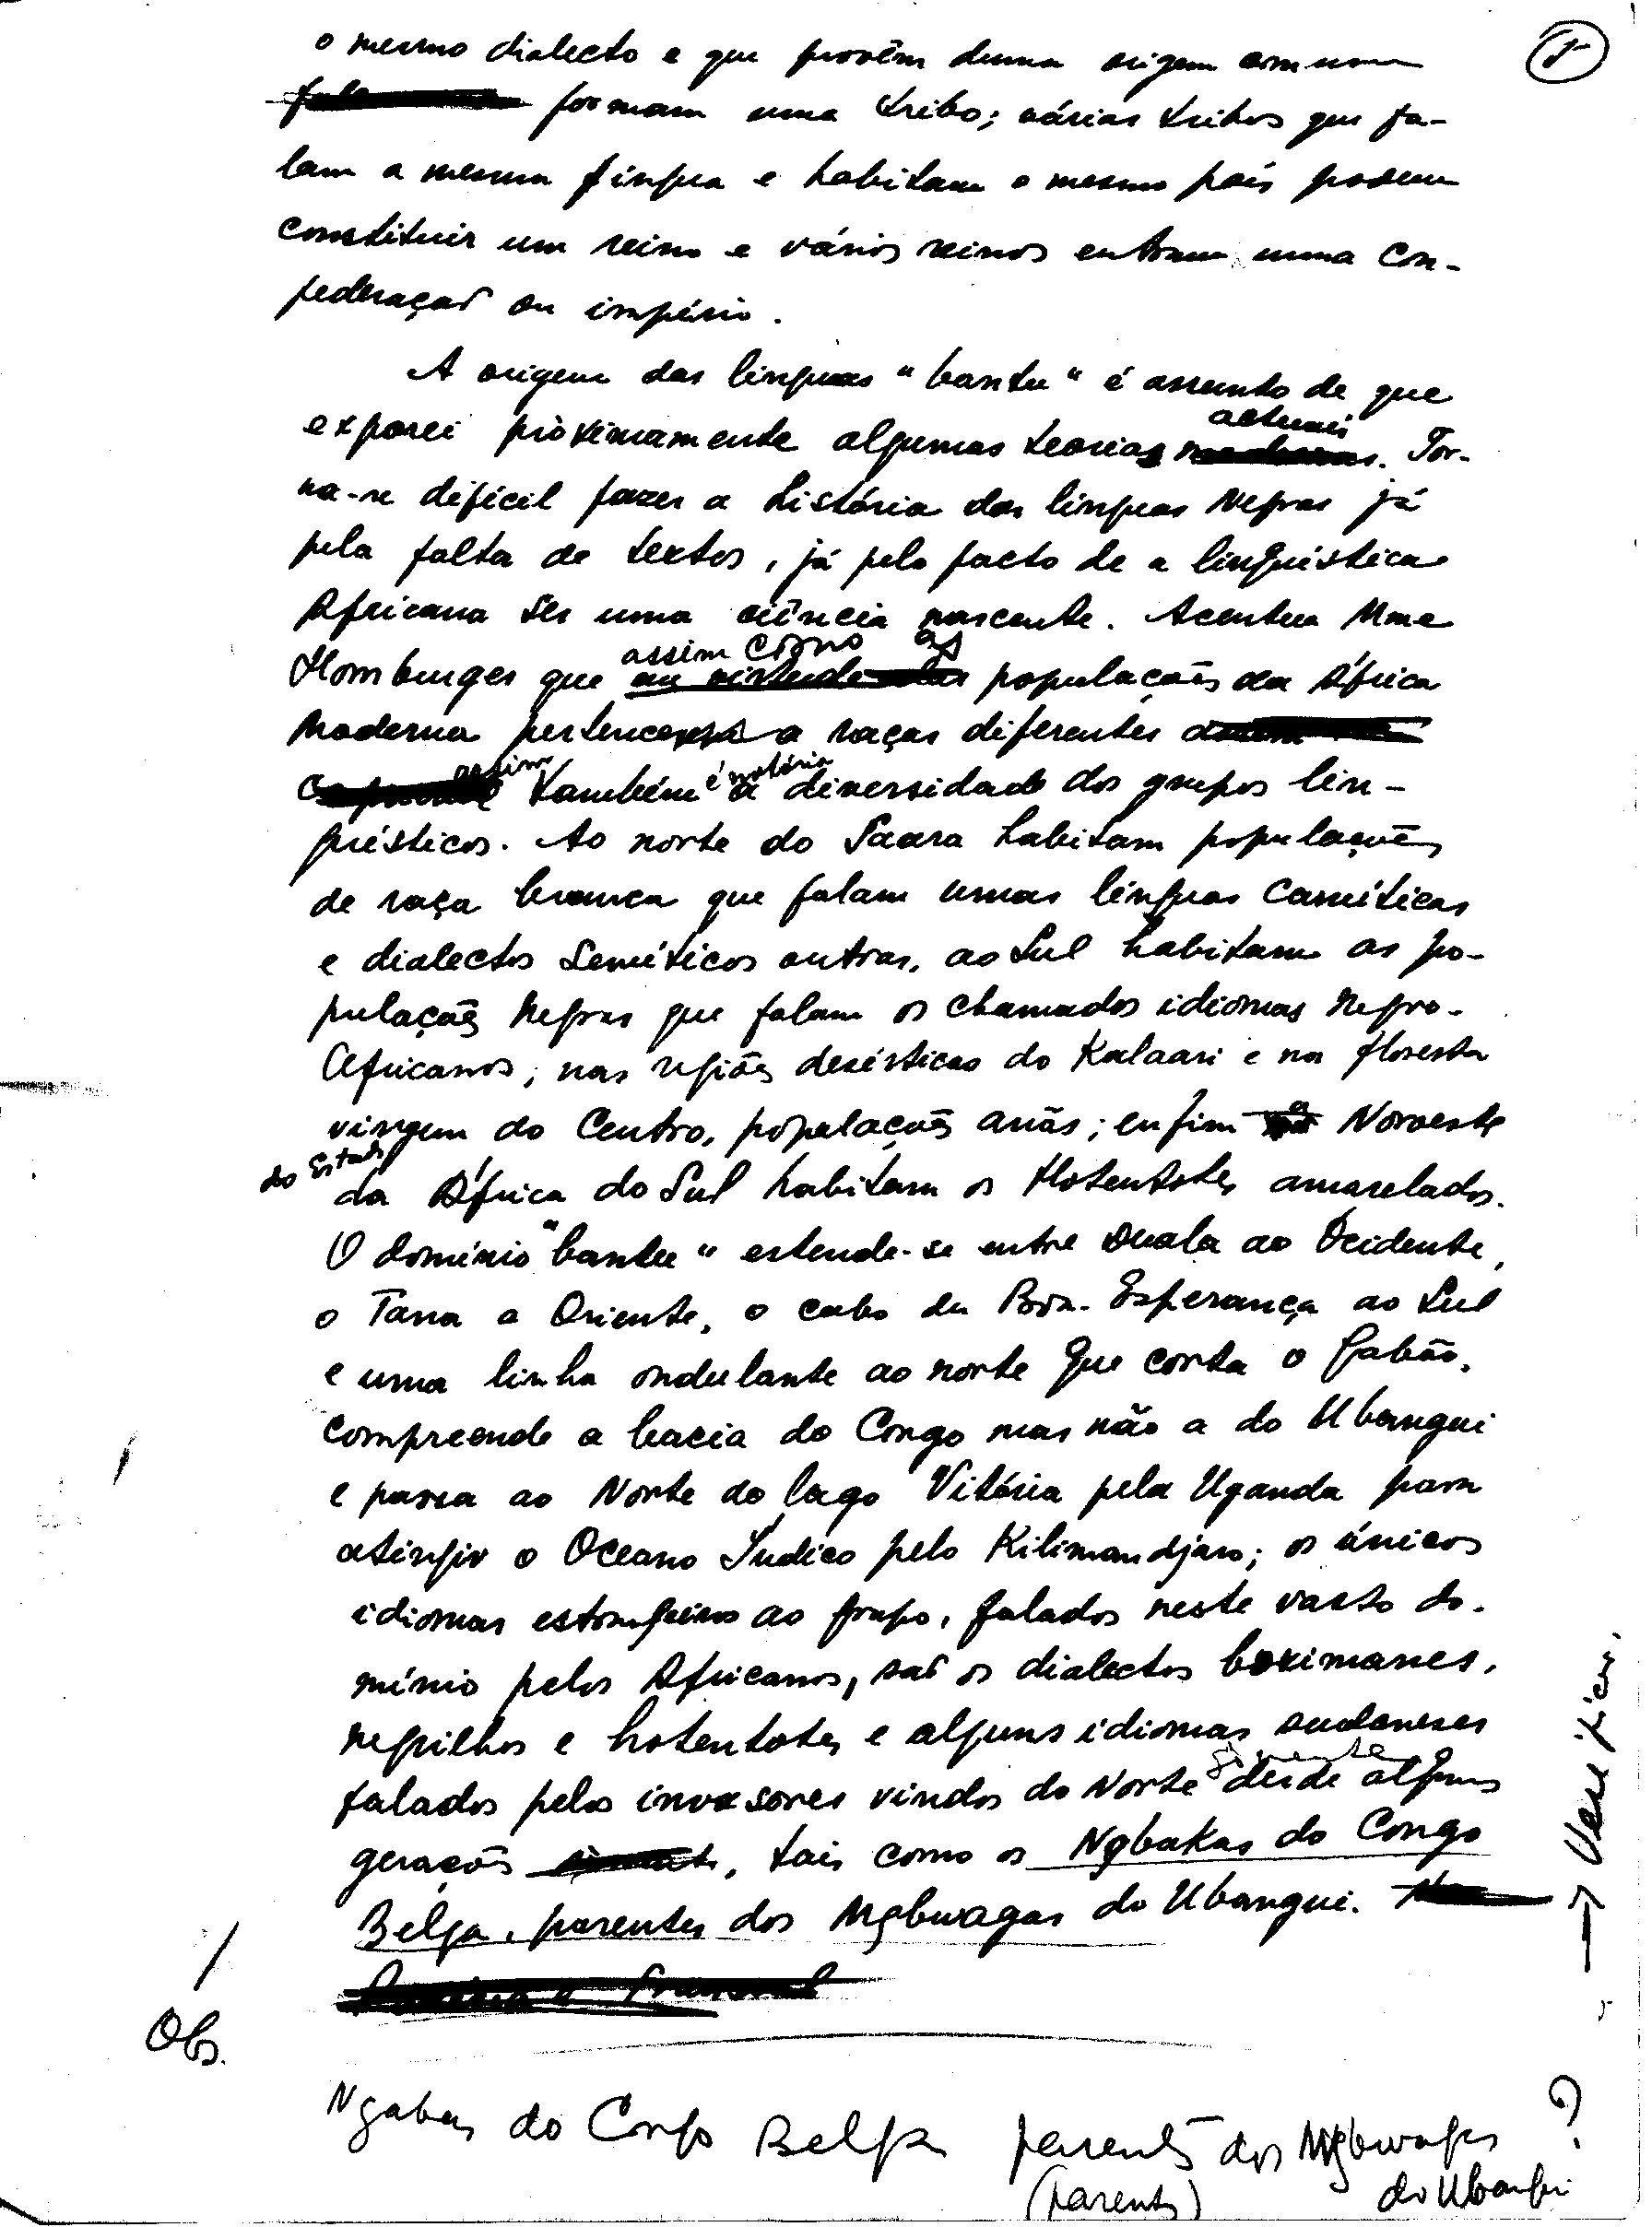 o mesmo dialecto e que provêm duma origem comum
formam uma tribo; várias tribos que fa-
lam a mesma língua e habitam o mesmo país podem
constituir um reino e vários reinos entram numa con-
federação ou império.
A origem das línguas "bantu" é assunto de que
exporei pròximamente algumas teorias actuais. Tor-
na-se difícil fazer a história das línguas Negras já
pela falta de textos, já pelo facto de a linguística
Africana ser uma ciência nascente. Acentua Mme
Homburger que assim como as populações da África
Moderna pertencem a raças diferentes
assim também é notória a diversidade dos grupos lin-
guísticos. Ao norte do Saara habitam populações
de raça branca que falam umas línguas Camíticas
e dialectos Semíticos outras, ao Sul habitam as po-
pulações Negras que falam os chamados idiomas Negro-
Africanos; nas regiões desérticas do Kalaari e na floresta
virgem do Centro, populações anãs; enfim a Noroeste
do Estado
da África do Sul habitam os Hotentotes amarelados.
O domínio "bantu" estende-se entre Duala ao Ocidente,
o Tana a Oriente, o cabo da Boa-Esperança ao Sul
e uma linha ondulante ao norte que corta o Gabão,
compreende a bacia do Congo mas não a do Ubangui
e passa ao Norte do lago Vitória pela Uganda para
atingir o Oceano Índico pelo Kilimandjaro; os únicos
idiomas estrangeiros ao grupo, falados neste vasto do-
mínio pelos Africanos, são os dialectos boximanes,
negrilhos e hotentotes e alguns idiomas sudaneses
falados pelos invasores vindos do Norte sòmente desde algumas
gerações, tais como os Ngbakas do Congo
Belga, parentes dos Mgbwagas do Ubangui.
→ Verificar.
Obs.
Ngabas do Congo Belga parentes dos Mgbwagas ?
(parentes) do Ubangui